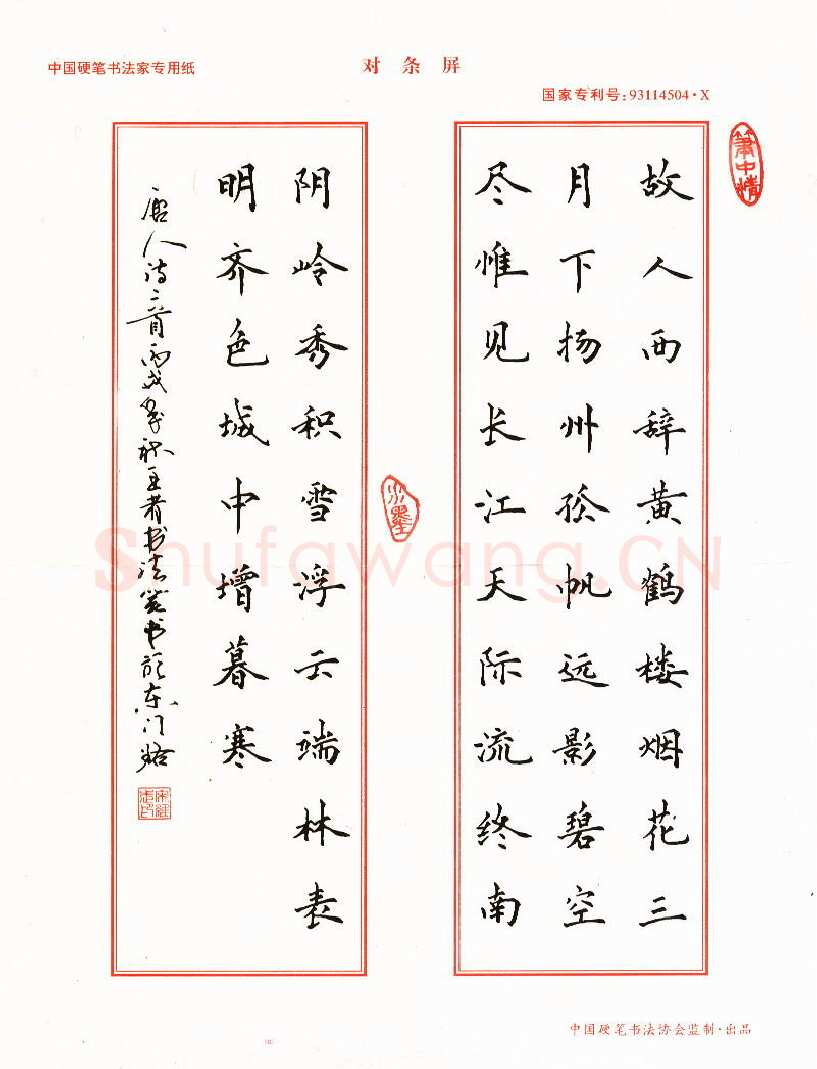 中国硬笔书法家专用纸
对条屏
国家专利号:93114504·X
故人西辞黄鹤楼烟花三
月下扬州孤帆远影碧空
尽惟见长江天际流终南
水墨
阴岭秀积雪浮云端林表
明齐色城中增暮寒
唐人诗二首丙戌
Shufawang.CN
中国硬笔书法协会监制·出品